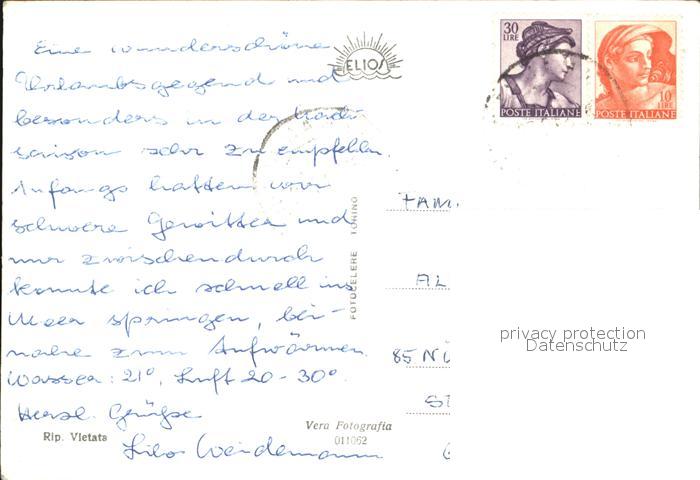 Eine wunderschöne
Urlaubsgegend und
besonders in der Nach-
saison sehr zu empfehlen.
Anfangs hatten wir
schwere Gewitter und
nur zwischendurch
konnte ich schnell ins
Meer springen, bei-
nahe zum Aufwärmen.
Wasser: 21°, Luft 20-30°.
Herzl. Grüße
Weidemann
Rip. Vietata
ELIOS
FOTOCELERE TORINO
Vera Fotografia
011062
30
LIRE
POSTE ITALIANE
10
LIRE
POSTE ITALIANE
FAM.
AL
85 NÜ
ST
privacy protection
Datenschutz